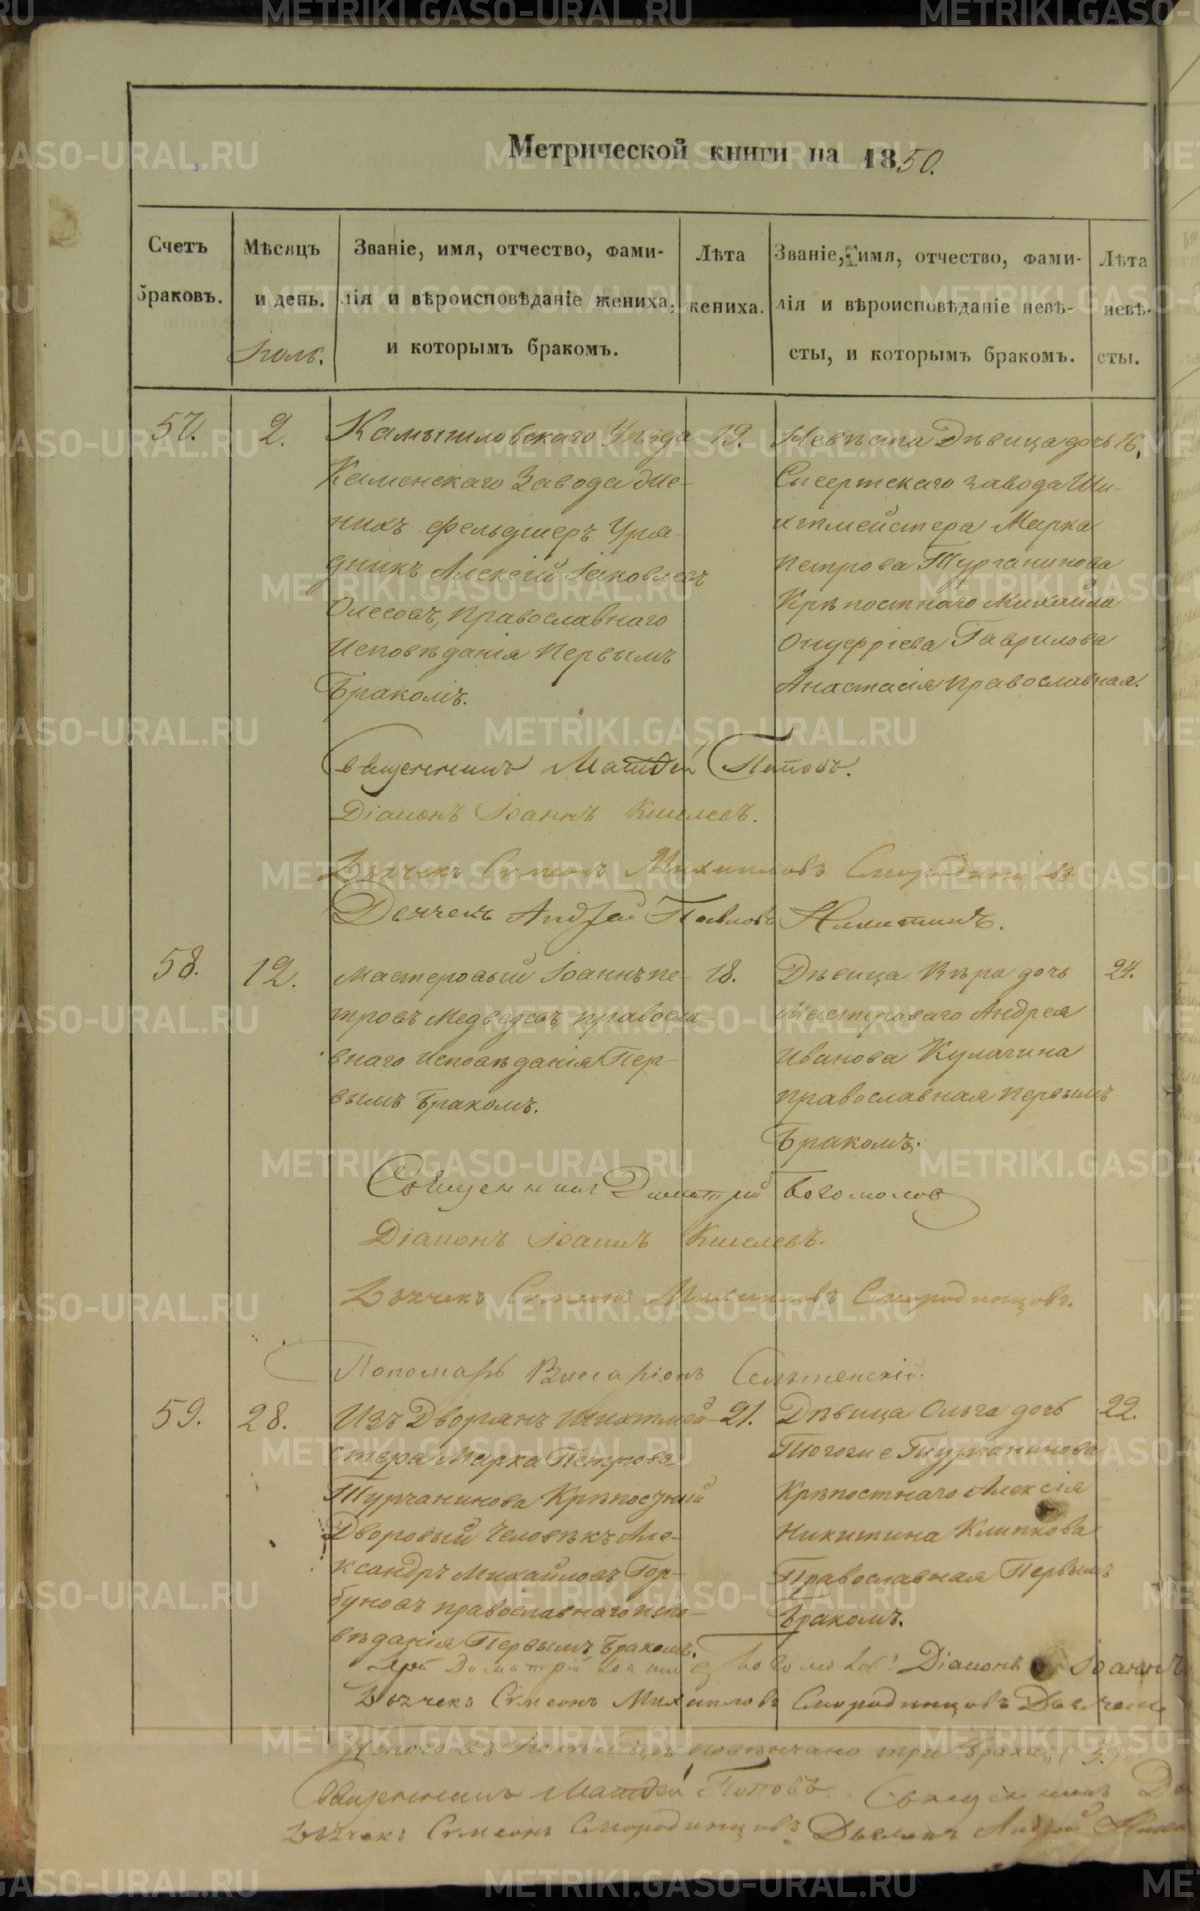 Метрической книги на 1850.
Счетъ браковъ.
Мѣсяцъ и день.
Іюль.
Званіе, имя, отчество, фами-
лія и вѣроисповѣданіе жениха,
и которымъ бракомъ.
Лѣта
жениха.
Званіе, имя, отчество, фами-
лія и вѣроисповѣданіе невѣ-
сты, и которымъ бракомъ.
Лѣта
невѣ-
сты.
57.
2.
Камышловскаго Уѣзда
Каменскаго Завода Же-
нихъ фельдшеръ Уря-
дникъ Алексій Іаковлевъ
Олесовъ, Православнаго
Исповѣданія Первымъ
Бракомъ.
19.
Невѣста Дѣвица дочь
Сысертскаго завода Ши-
хтмейстера Марка
Петрова Турчанинова
Крѣпостнаго Михайла
Онуфріева Гаврилова
Анастасія Православная.
16.
Священникъ Матѳей Поповъ.
Діаконъ Іоаннъ Киселевъ.
Дьячекъ Симеонъ Михаиловъ Смородинцовъ
Дьячекъ Андрей Павловъ Никитинъ.
58.
12.
Мастеровый Іоаннъ Пе-
тровъ Медведевъ правосла-
внаго исповѣданія Пер-
вымъ бракомъ.
18.
Дѣвица Вѣра дочь
Мастероваго Андрея
Иванова Кулагина
православная первымъ
Бракомъ.
24.
Священникъ Димитрій Богомолов
Діаконъ Іоаннъ Киселевъ.
Дьячекъ Симеонъ Михаиловъ Смородинцовъ.
Пономарь Виссаріонъ
59.
28.
Изъ Дворянъ Шихтмей-
стера Марка Петрова
Турчанинова Крѣпостный
Дворовый Человѣкъ Але-
ксандръ Михайловъ Гор-
буновъ православнаго испо-
вѣданія Первымъ Бракомъ.
21.
Дѣвица Ольга дочь
Тогоже Турчанинова
Крѣпостнаго Алексія
Никитина
Православная Первымъ
Бракомъ.
22.
Димитрій Діаконъ Іоаннъ
Дьячекъ Симеонъ Михаиловъ Смородинцовъ Дьячекъ
повѣнчано три брака
Священникъ Матѳей Поповъ. Священникъ
Дьячекъ Симеонъ Смородинцовъ Дьячекъ Андрей
METRIKI.GASO-URAL.RU